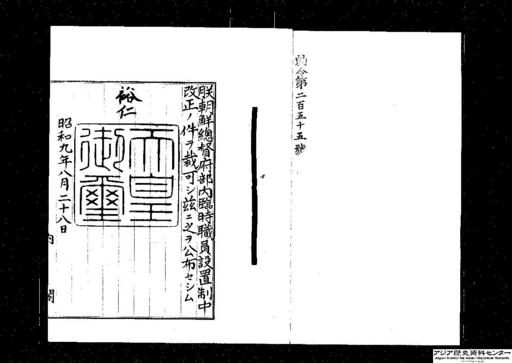 勅令第二百五十五號
朕朝鮮總督府部內臨時職員設置制中
改正ノ件ヲ裁可シ玆ニ之ヲ公布セシム
裕仁
天皇御璽
昭和九年八月二十八日
內閣
アジア歴史資料センター
Japan Center for Asian Historical Records